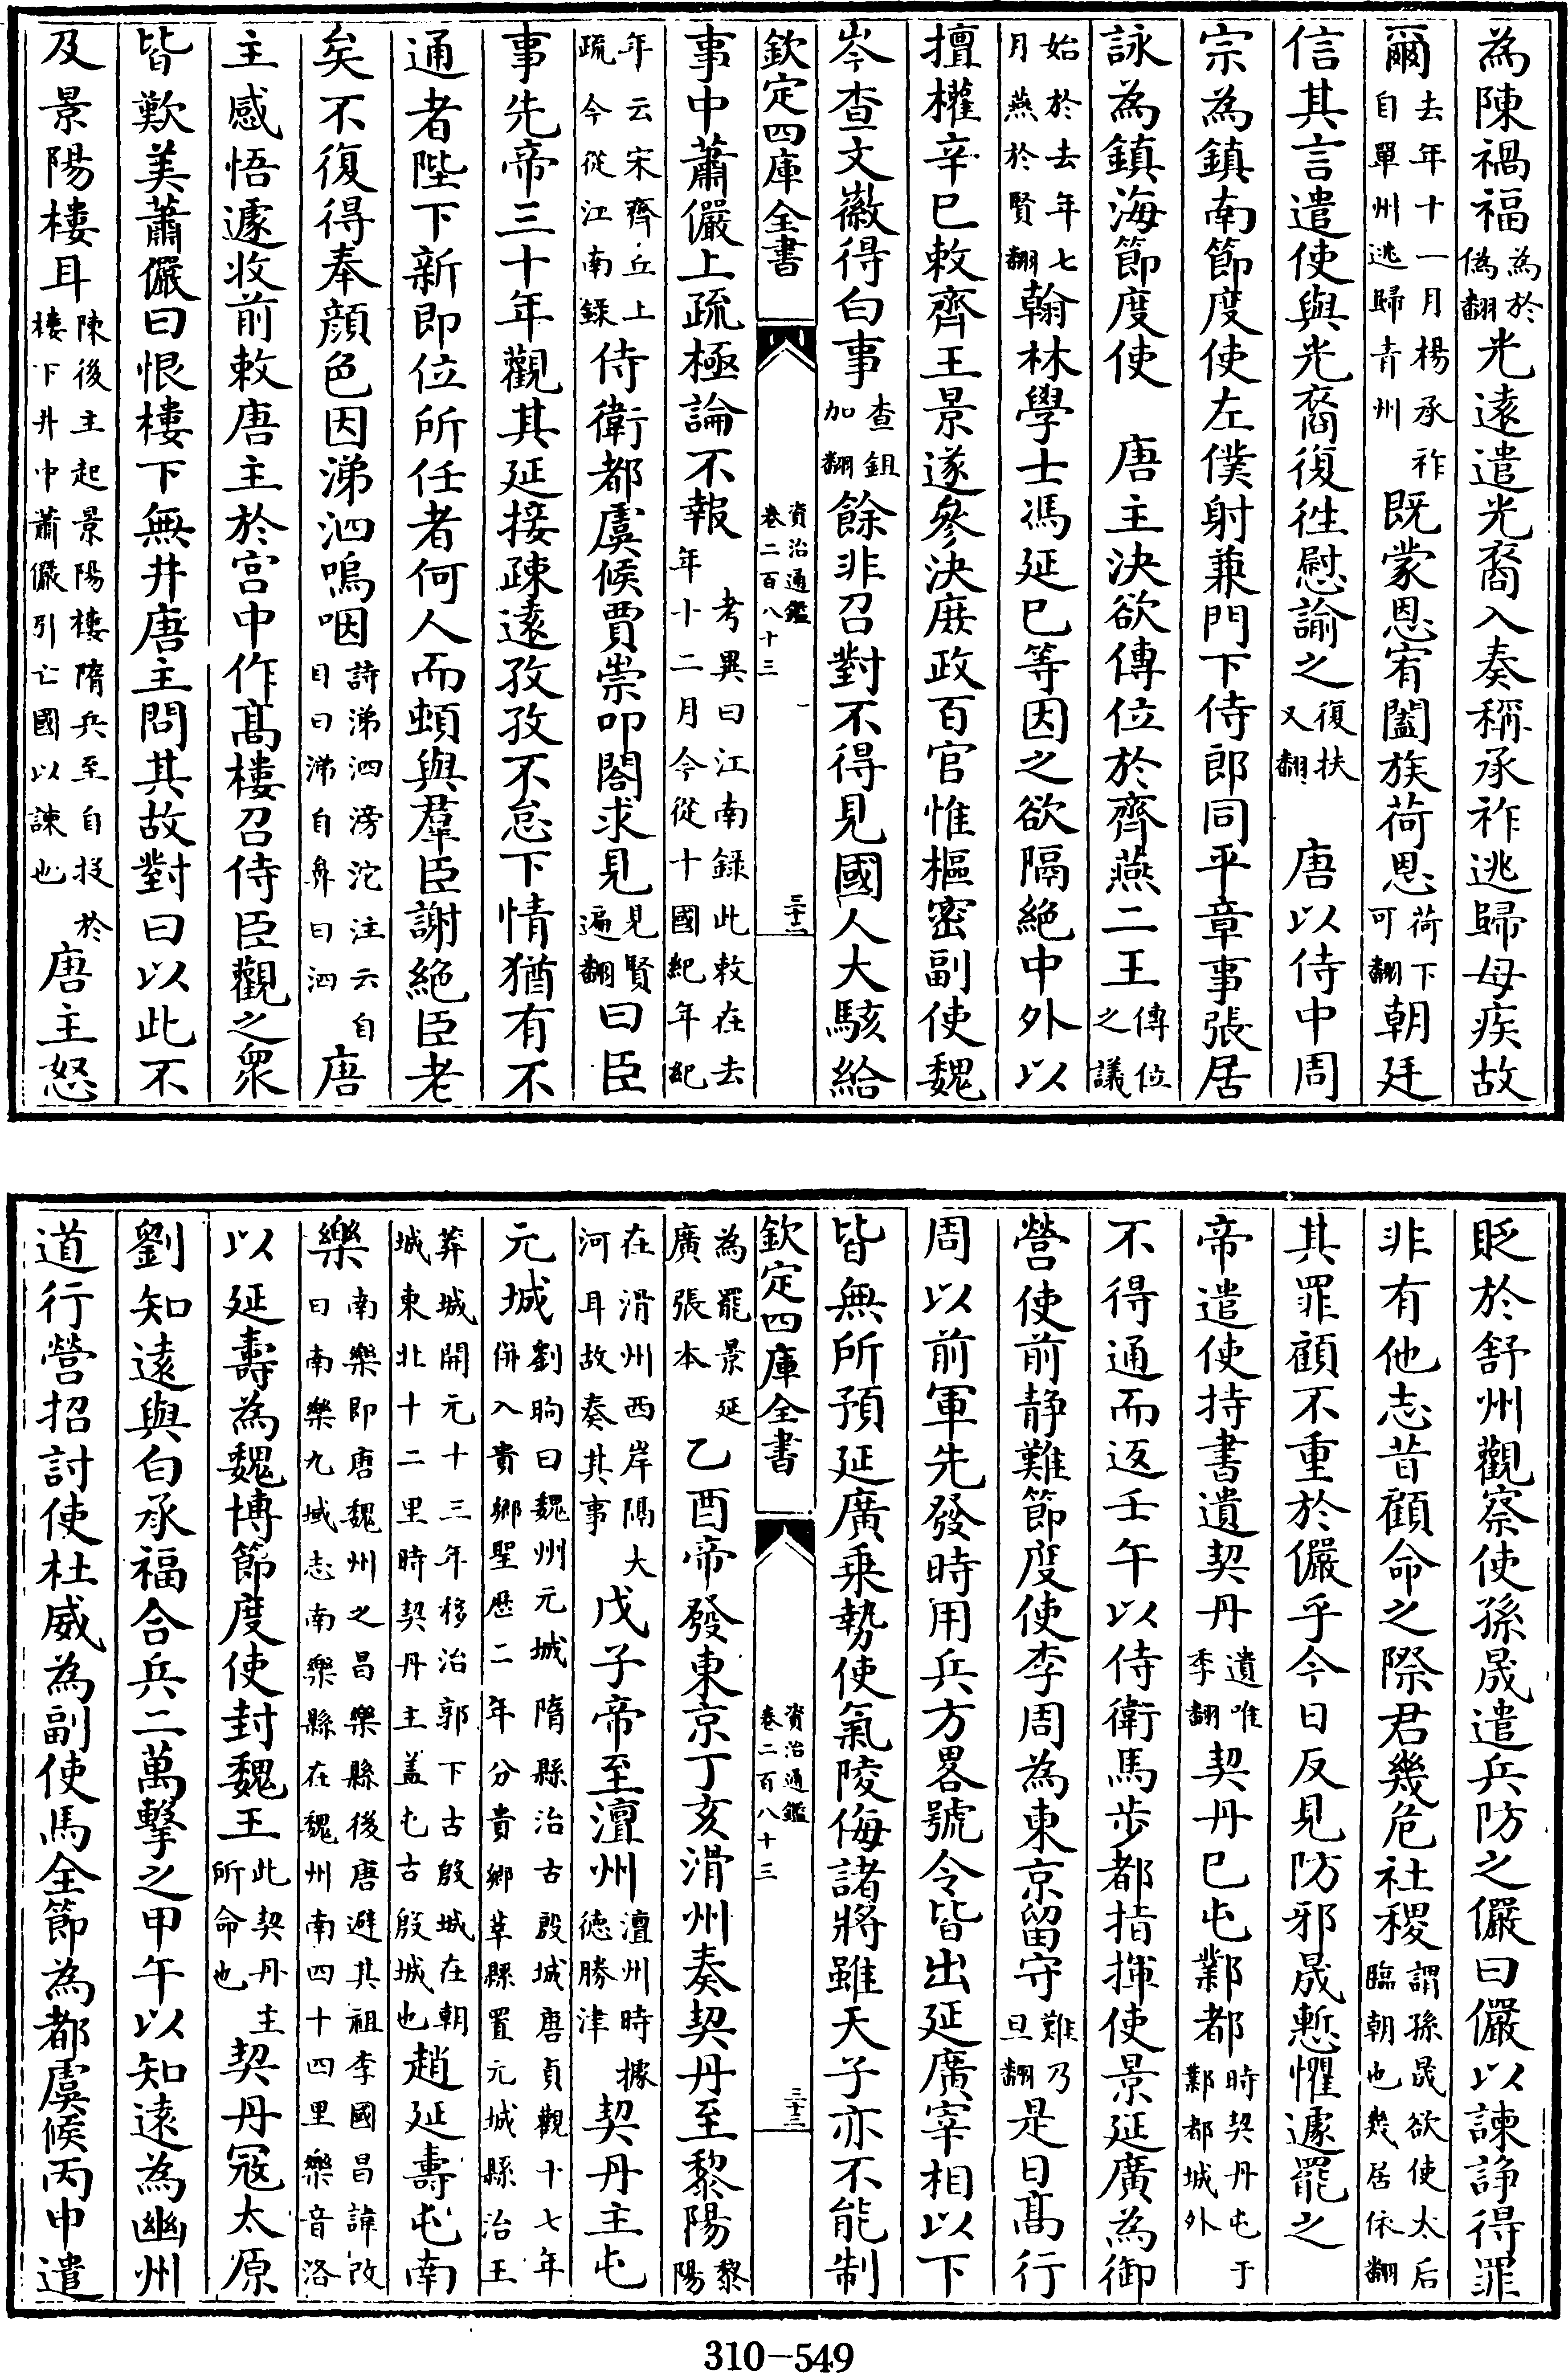 為陳禍福為於偽翻光遠遣光裔入奏稱承祚逃歸母疾故
爾去年十一月楊承祚自單州逃歸青州既蒙恩宥闔族荷恩荷下可翻朝廷
信其言遣使與光裔復徃慰諭之復扶又翻　唐以侍中周
宗為鎮南節度使左僕射兼門下侍郎同平章事張居
詠為鎮海節度使　唐主決欲傳位於齊燕二王傳位之議
始於去年七月燕於賢翻翰林學士馮延巳等因之欲隔絶中外以
擅權辛巳敕齊王景遂參決庶政百官惟樞密副使魏
岑查文徽得白事查鉏加翻餘非召對不得見國人大駭給
欽定四庫全書　資治通鑑卷二百八十三　三十二
事中蕭儼上疏極論不報考異曰江南録此敕在去年十二月今從十國紀年紀
年云宋齊丘上疏今從江南録侍衛都虞候賈崇叩閤求見見賢遍翻曰臣
事先帝三十年觀其延接疎遠孜孜不怠下情猶有不
通者陛下新即位所任者何人而頓與羣臣謝絶臣老
矣不復得奉顔色因涕泗嗚咽詩涕泗滂沱注云自目曰涕自鼻曰泗唐
主感悟遽收前敕唐主於宫中作髙樓召侍臣觀之衆
皆歎美蕭儼曰恨樓下無井唐主問其故對曰以此不
及景陽樓耳陳後主起景陽樓隋兵至自投於樓下井中蕭儼引亡國以諫也唐主怒
貶於舒州觀察使孫晟遣兵防之儼曰儼以諫諍得罪
非有他志昔顧命之際君幾危社稷謂孫晟欲使太后臨朝也幾居依翻
其罪顧不重於儼乎今日反見防邪晟慙懼遽罷之
帝遣使持書遺契丹遺唯季翻契丹已屯鄴都時契丹屯于鄴都城外
不得通而返壬午以侍衛馬步都指揮使景延廣為御
營使前静難節度使李周為東京留守難乃旦翻是日髙行
周以前軍先發時用兵方畧號令皆出延廣宰相以下
皆無所預延廣乗勢使氣陵侮諸將雖天子亦不能制
欽定四庫全書　資治通鑑卷二百八十三　三十三
為罷景延廣張本　乙酉帝發東京丁亥滑州奏契丹至黎陽黎陽
在滑州西岸隔大河耳故奏其事　戊子帝至澶州澶州時據德勝津契丹主屯
元城劉昫曰魏州元城隋縣治古殷城唐貞觀十七年併入貴鄉聖厯二年分貴鄉莘縣置元城縣治王
莽城開元十三年移治郭下古殷城在朝城東北十二里時契丹主盖屯古殷城也趙延壽屯南
樂南樂即唐魏州之昌樂縣後唐避其祖李國昌諱改曰南樂九域志南樂縣在魏州南四十四里樂音洛
以延壽為魏博節度使封魏王此契丹主所命也　契丹冦太原
劉知遠與白承福合兵二萬擊之甲午以知遠為幽州
道行營招討使杜威為副使馬全節為都虞候丙申遣
310-549